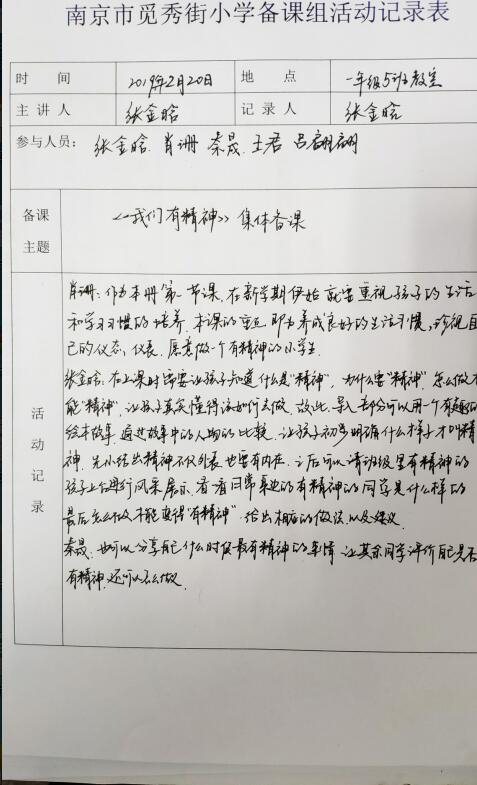 南京市觅秀街小学备课组活动记录表
时 间 2019年2月20日 地 点 一年级5班教室
主讲人 张金晗 记录人 张金晗
参与人员: 张金晗 肖珊 秦晟 王君 吕翩翩
备课主题 《我们有精神》集体备课
活动记录
肖珊:作为本册第一节课,在新学期伊始就要重视孩子的生活
和学习习惯的培养.本课的重点即为养成良好的生活习惯,珍视自
己的仪态、仪表.愿意做一个有精神的小学生.
张金晗:在上课时需要让孩子知道什么是"精神",为什么要"精神",怎么做才
能"精神",让孩子真实懂得该如何去做.故此,导入部分可以用一个有趣的
绘本故事.通过故事中的人物的比较,让孩子初步明确什么样子才叫精
神.先小结出精神不仅外表也要有内在.之后可以请班级里有精神的
孩子上台进行风采展示.看看日常身边的有精神的同学是什么样的
最后怎么做才能变得"有精神".给出相应的做法以及建议.
秦晟.也可以分享自己什么时候最有精神的事情.让其余同学评价自己是否
有精神,还可以怎么做.